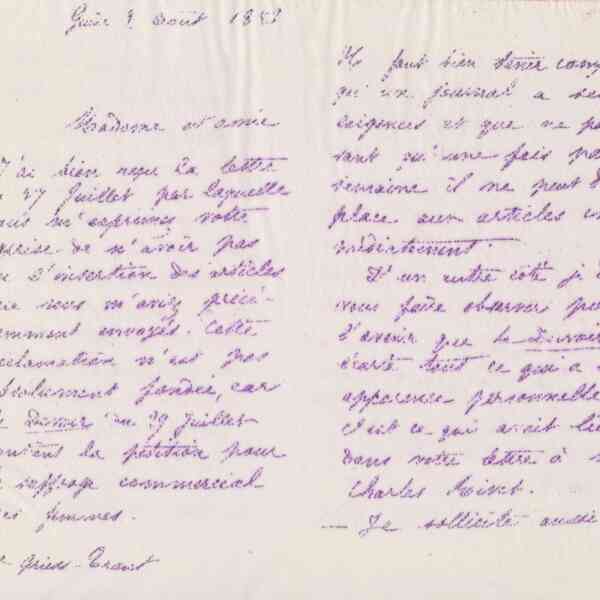 Guise 3 août 188
Madame et amie
J'ai bien reçu la lettre
27 Juillet par laquelle
vous m'exprimez votre
surprise de n'avoir pas
vu l'insertion des articles
que vous m'aviez précé-
demment envoyés. Cette
réclamation n'est pas
absolument fondée, car
le Devoir du 29 Juillet
contient la pétition pour
le suffrage commercial
des femmes.
Griess-Traut
Il faut bien tenir
qu'un journal a
exigences et que ne
sant qu'une fois
semaine il ne peut
place aux articles
médiatement
D'un autre côté je
vous faire observer
l'avenir que le Devoir
écarte tout ce qui a
apparence personnelle
c'est ce qui avait
dans votre lettre à
Charles
Je sollicite aussi